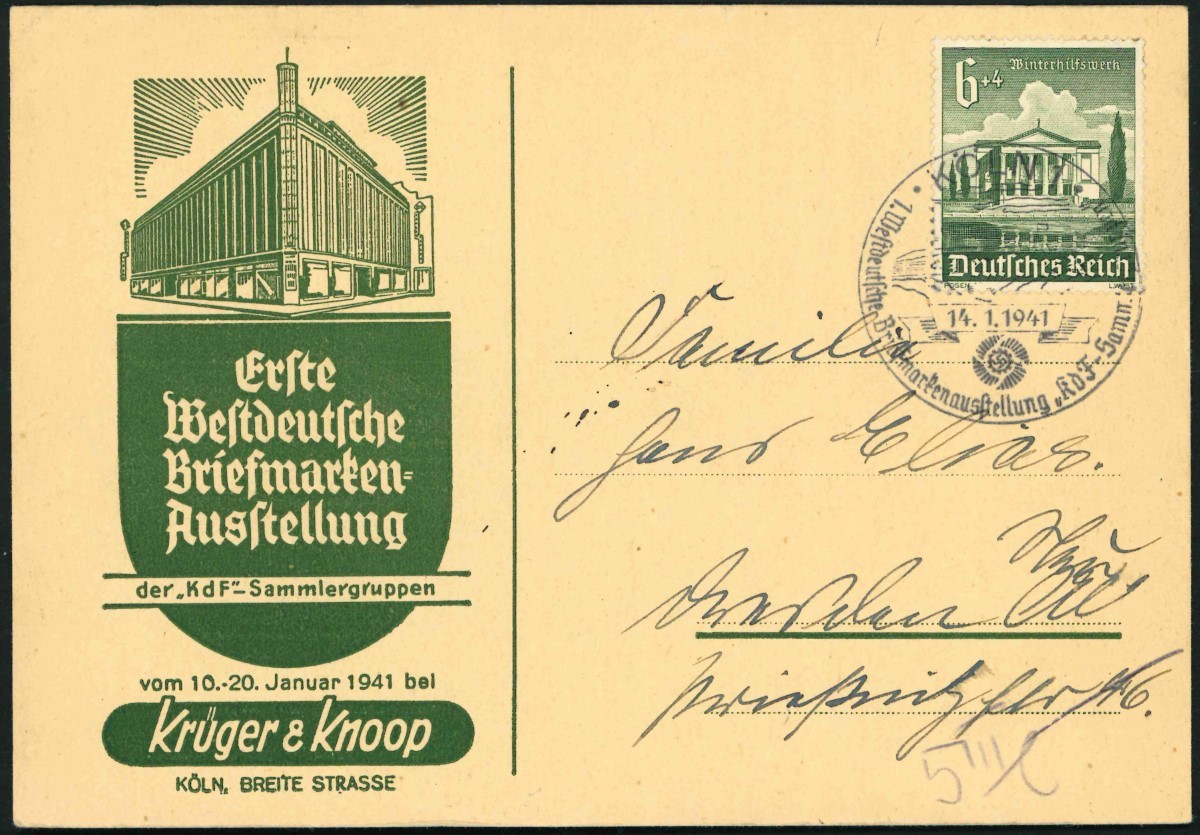 Erste
Westdeutsche
Briefmarken-
Ausstellung
der „KdF"-Sammlergruppen
vom 10.-20. Januar 1941 bei
Krüger & Knoop
KÖLN, BREITE STRASSE
6+4 Winterhilfswerk
Deutsches Reich
POSEN
KÖLN 1
1. Westdeutsche Briefmarkenausstellung „KdF-Samm
14.1.1941
Familie
Hans Elias.
Dresden
46.